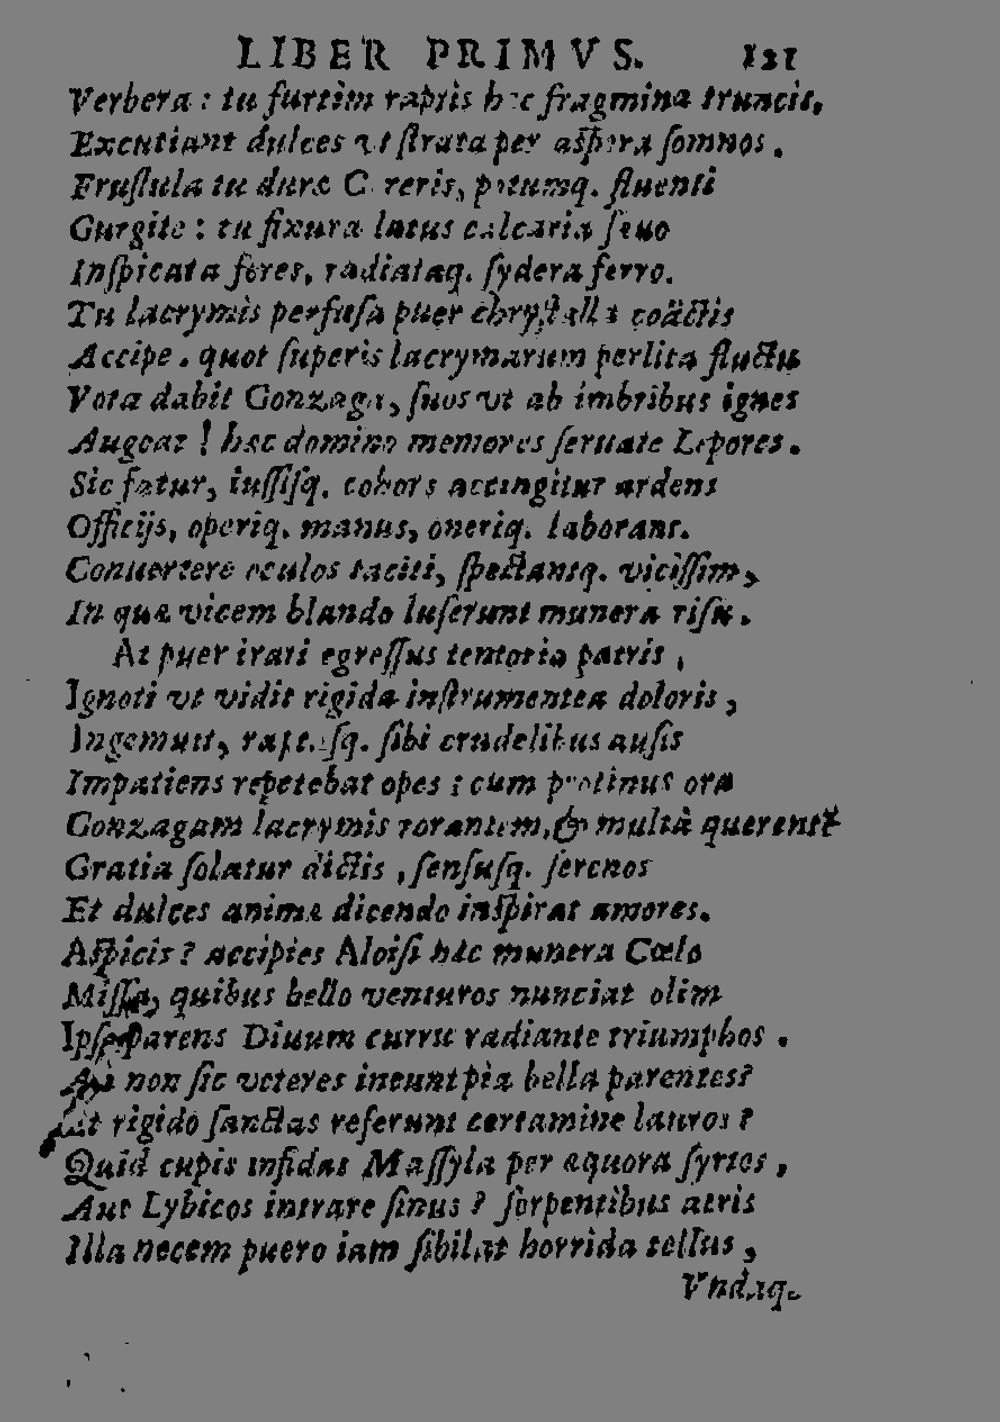 LIBER PRIMVS. 121
Verbera: tu furtim raptis hæc fragmina truncis,
Excutiant dulces vt strata per aspera somnos.
Frustula tu duræ Cereris, potumq. fluenti
Gurgite: tu fixura latus calcaria sæuo
Inspicata feres, radiataq. sydera ferro.
Tu lacrymis perfusa puer chrystalla coäctis
Accipe. quot superis lacrymarum perlita fluctu
Vota dabit Gonzaga, suos vt ab imbribus ignes
Augeat! hæc domino memores seruate Lepores.
Sic fatur, iussisq. cohors accingitur ardens
Officijs, operiq. manus, oneriq. laborant.
Conuertere oculos taciti, spectantq. vicissim,
In quæ vicem blando luserunt munera risu.
At puer irati egressus tentoria patris,
Ignoti vt vidit rigida instrumentea doloris,
Ingemuit, sibi crudelibus ausis
Impatiens repetebat opes; cum protinus ora
Gonzagam lacrymis rorantem, & multà querentē
Gratia solatur dictis, sensusq. serenos
Et dulces animæ dicendo inspirat amores.
Aspicis? accipies Aloisi hæc munera Cœlo
Missa, quibus bello venturos nunciat olim
Ipse parens Diuum curru radiante triumphos.
An non sic veteres ineunt pia bella parentes?
Et rigido sanctas referunt certamine lauros?
Quid cupis infidas Massyla per æquora syrtes,
Aut Lybicos intrare sinus? serpentibus atris
Illa necem puero iam sibilat horrida tellus,
Vndaq.